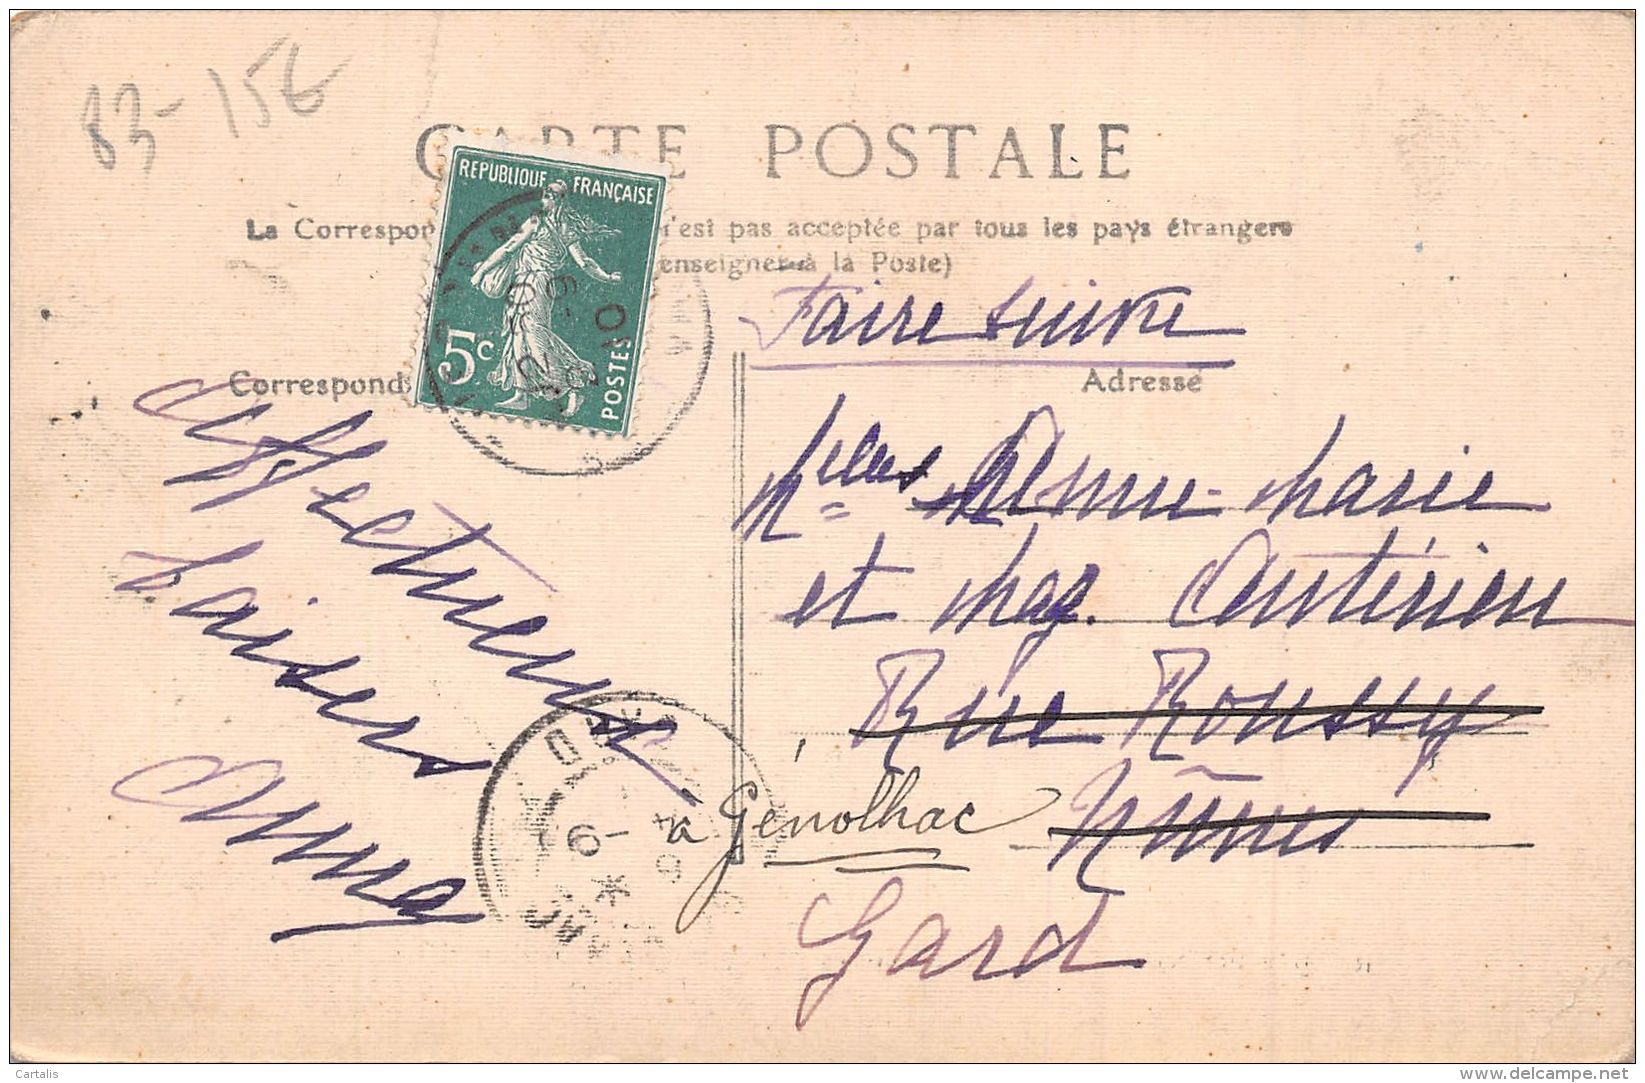 83-15€
CARTE POSTALE
RÉPUBLIQUE FRANÇAISE
5c
POSTES
La Correspon n'est pas acceptée par tous les pays étrangers
enseigner à la Poste)
Faire suivre
Correspond
Adresse
Affectueux
baisers
Mlles Anne-Marie
et Mag.
Rue Roussy
à Génolhac Nîmes
Gard
Cartalis
www.delcampe.net